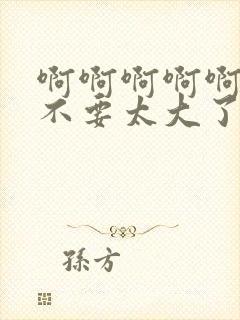 啊啊啊啊啊
不要太大了
孫方